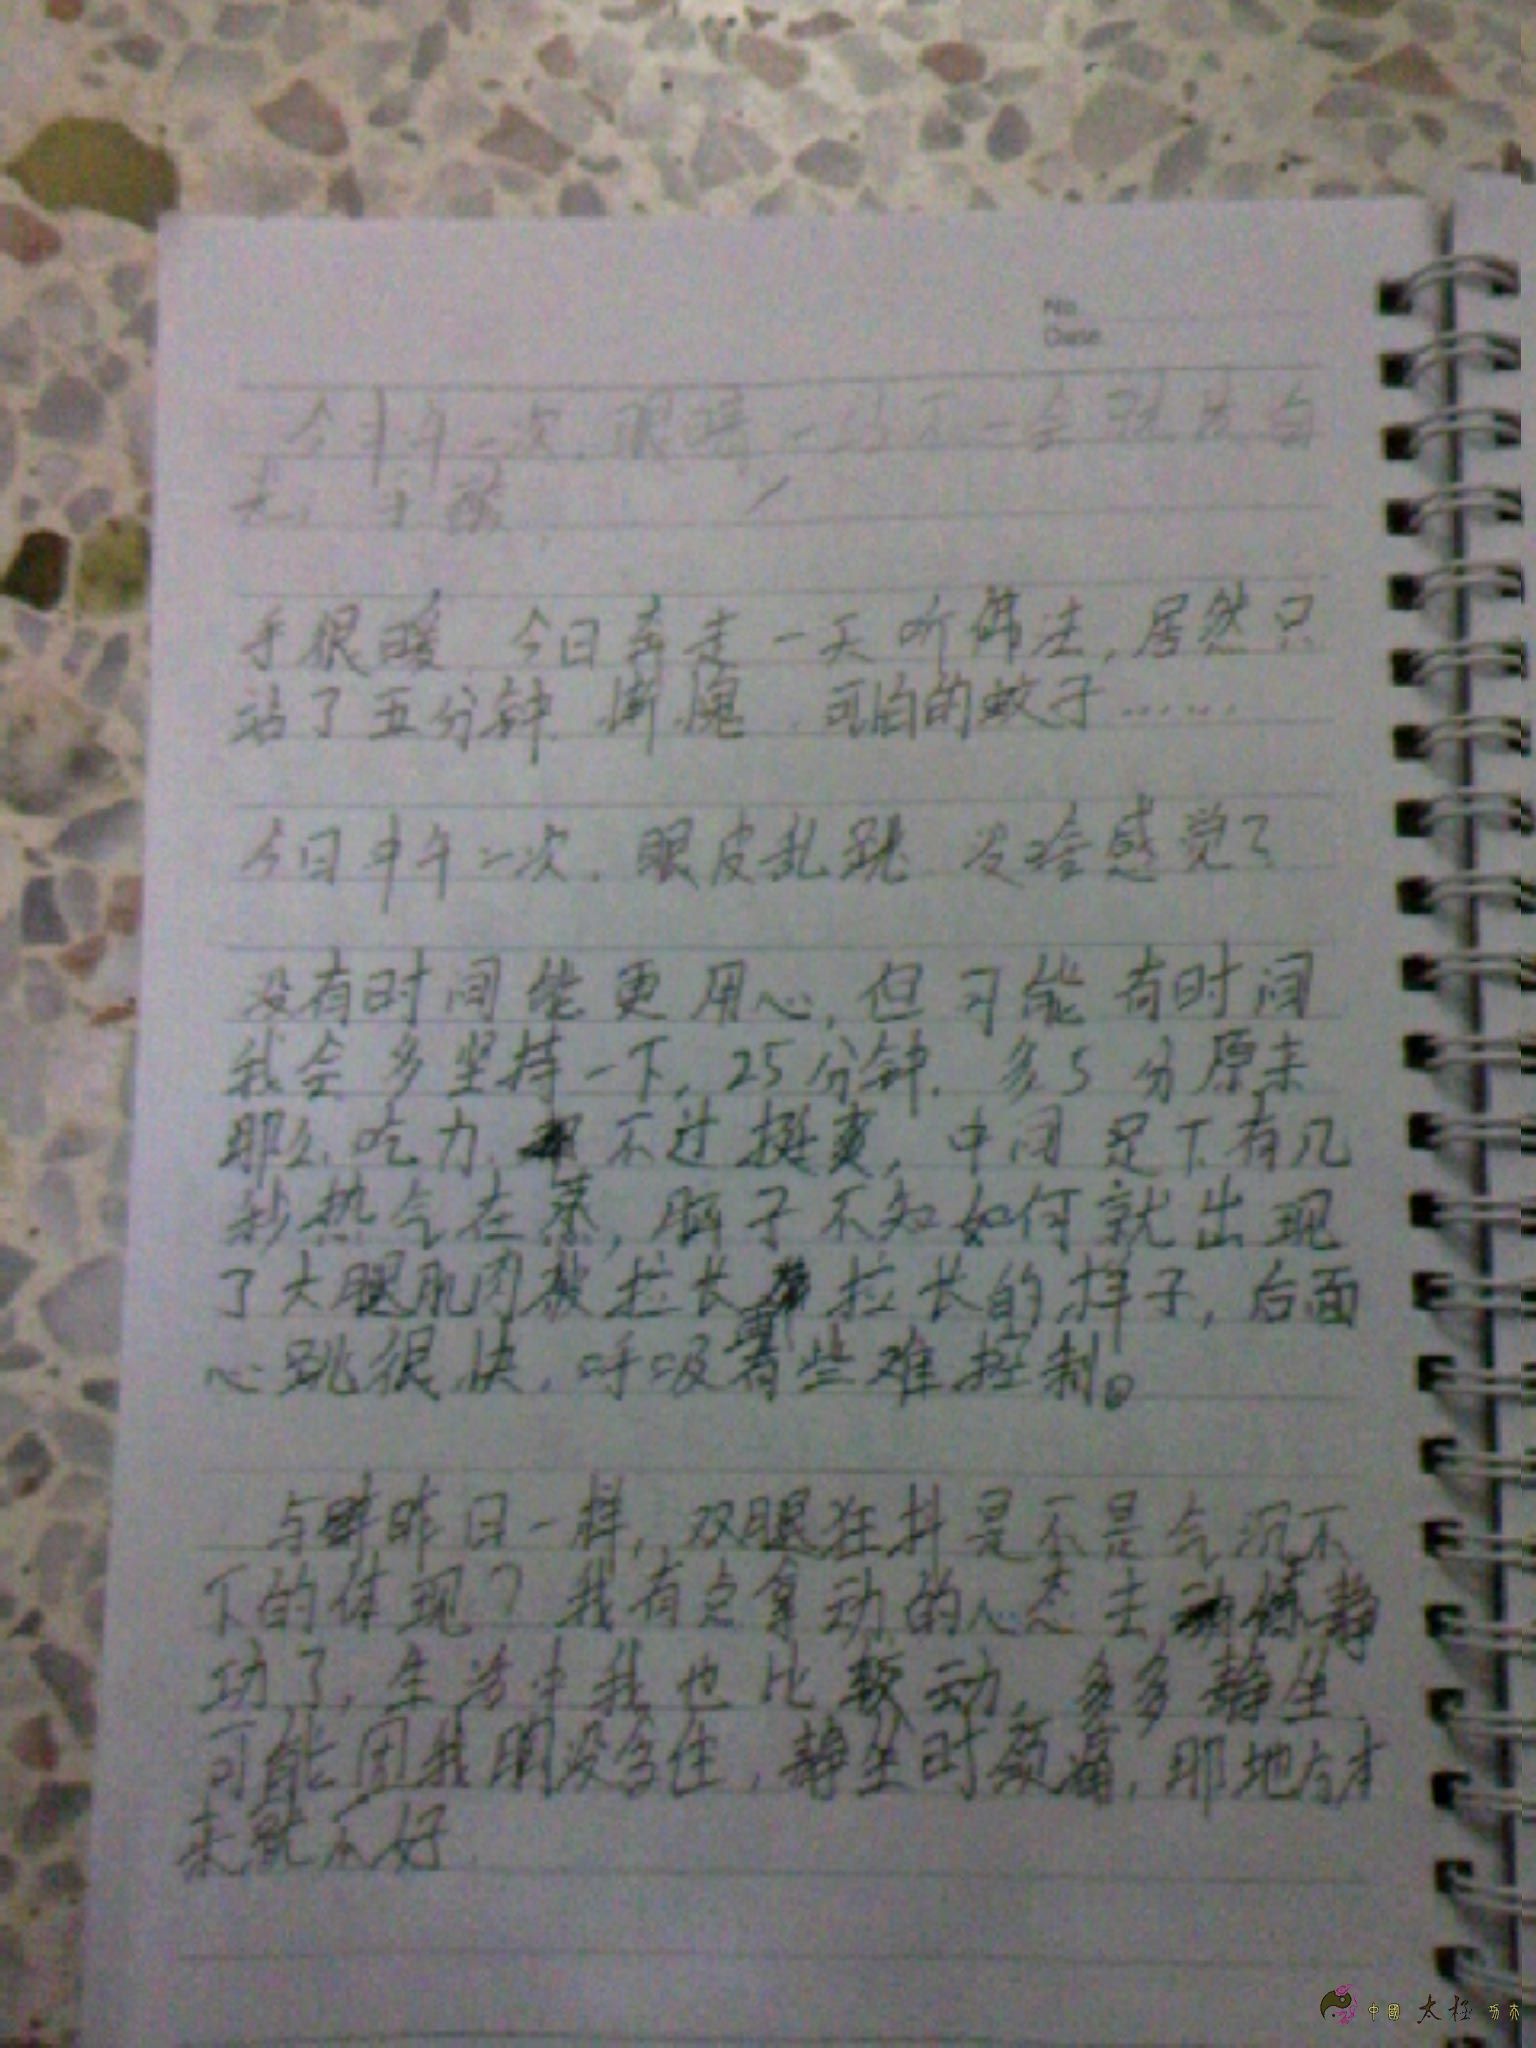 No.
Date.
今 午一次 眼睛 一 不一会就 白
手很暖 今日奔走一天听佛法,居然只
站了五分钟 惭愧 可怕的蚊子……
今日中午一次. 眼皮乱跳 没啥感觉了
没有时间能更用心,但可能有时间
我会多坚持一下,25分钟. 多5分原来
那么吃力 不过挺爽,中间足下有几
秒热气在蒸,脑子不知如何就出现
了大腿肌肉被拉长 拉长的样子,后面
心跳很快,呼吸有些难控制。
与 昨日一样,双腿狂抖是不是气沉不
下的体现?我有点拿动的心态去 练静
功了,生活中我也比较动,多多静坐
可能因我阴没含住,静坐时颈痛,那地方本
来就不好
中國太极功夫